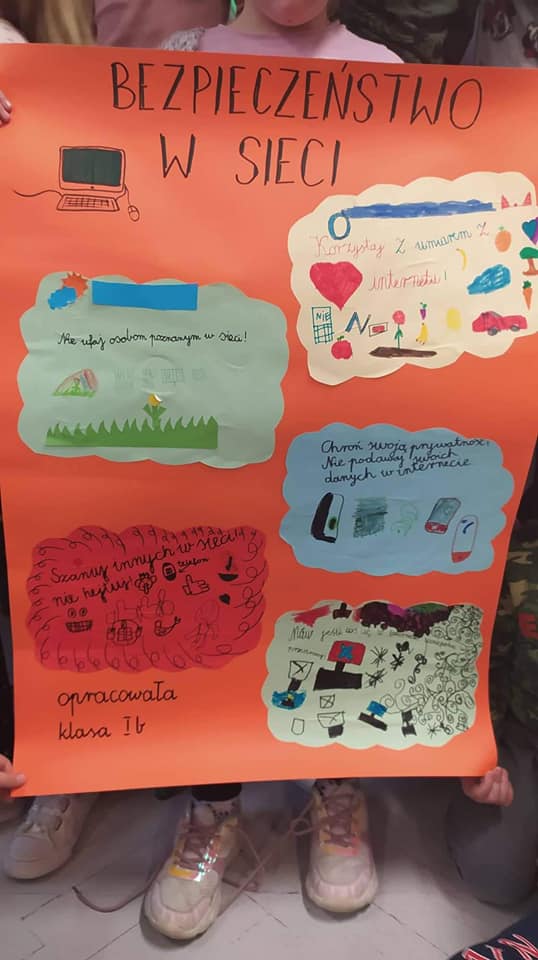 BEZPIECZEŃSTWO
W SIECI
Korzystaj z umiarem z
internetu!
NIE
Nie ufaj osobom poznanym w sieci!
Chroń swoją prywatność.
Nie podawaj swoich
danych w internecie
Szanuj innych w sieci!
nie hejtuj!
telefon
opracowała
klasa I b